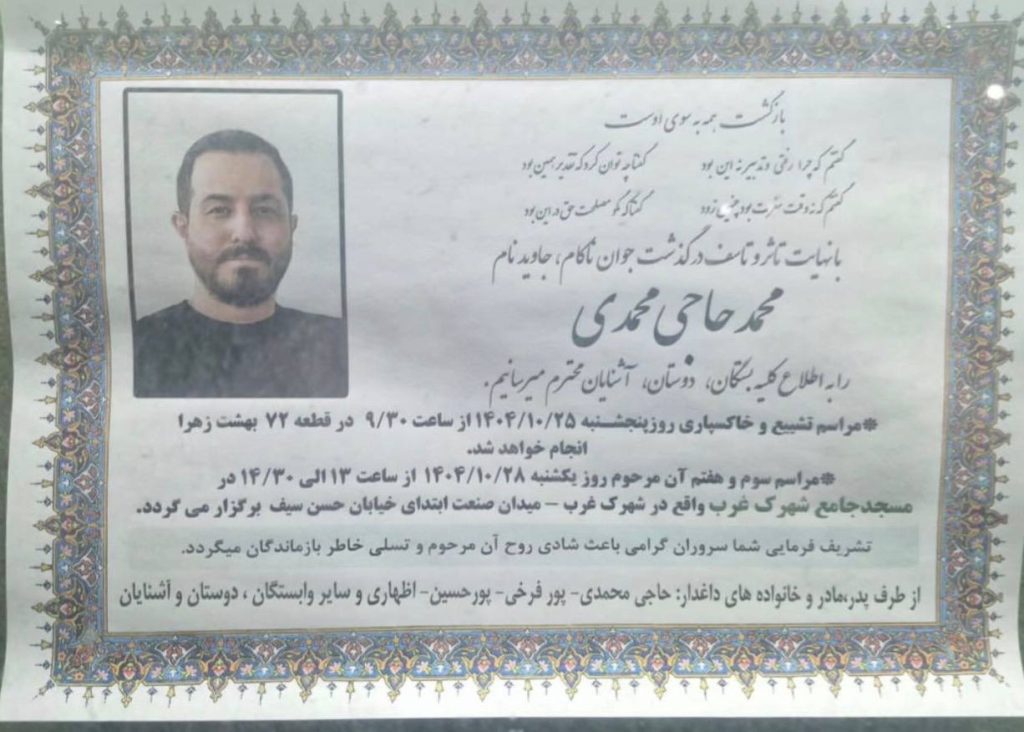 بازگشت همه به سوی اوست
گفتم که چرا رفتی و تدبیر نه این بود گفتا چه توان کرد که تقدیر همین بود
گفتم که نه وقت سفرت بود چنین زود گفتا که مگو مصلحت حق در این بود
بانهایت تاثر و تاسف درگذشت جوان ناکام، جاوید نام
محمد حاجی محمدی
را به اطلاع کلیه بستگان، دوستان، آشنایان محترم میرسانیم.
*مراسم تشییع و خاکسپاری روزپنجشنبه ۱۴۰۴/۱۰/۲۵ از ساعت ۹/۳۰ در قطعه ۷۲ بهشت زهرا
انجام خواهد شد.
*مراسم سوم و هفتم آن مرحوم روز یکشنبه ۱۴۰۴/۱۰/۲۸ از ساعت ۱۳ الی ۱۴/۳۰ در
مسجدجامع شهرک غرب واقع در شهرک غرب – میدان صنعت ابتدای خیابان حسن سیف برگزار می گردد.
تشریف فرمایی شما سروران گرامی باعث شادی روح آن مرحوم و تسلی خاطر بازماندگان میگردد.
از طرف پدر،مادر و خانواده های داغدار: حاجی محمدی- پور فرخی- پورحسین- اظهاری و سایر وابستگان ، دوستان و آشنایان